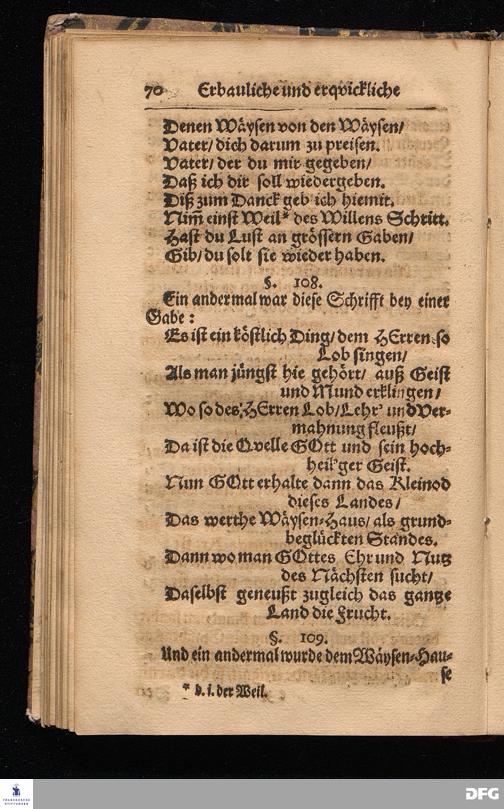 70 Erbauliche und erqvickliche
Denen Wäysen von den Wäysen/
Vater/ dich darum zu preisen.
Vater/ der du mir gegeben/
Daß ich dir soll wiedergeben.
Diß zum Danck geb ich hiemit.
Nim̃ einst Weil* des Willens Schritt.
Hast du Lust an grössern Gaben/
Gib/ du solt sie wieder haben.
§. 108.
Ein andermal war diese Schrifft bey einer
Gabe:
Es ist ein köstlich Ding/ dem HErren so
Lob singen/
Als man jüngst hie gehört/ auß Geist
und Mund erklingen/
Wo so des HErren Lob/ Lehr' und Ver-
mahnung fleußt/
Da ist die Qvelle GOtt und sein hoch-
heil'ger Geist.
Nun GOtt erhalte dann das Kleinod
dieses Landes/
Das werthe Wäysen-Haus/ als grund-
beglückten Standes.
Dann wo man GOttes Ehr und Nutz
des Nächsten sucht/
Daselbst geneußt zugleich das gantze
Land die Frucht.
§. 109.
Und ein andermal wurde dem Wäysen-Hau-
se
* b. i. der Weil.
FRANCKESCHE
STIFTUNGEN
DFG